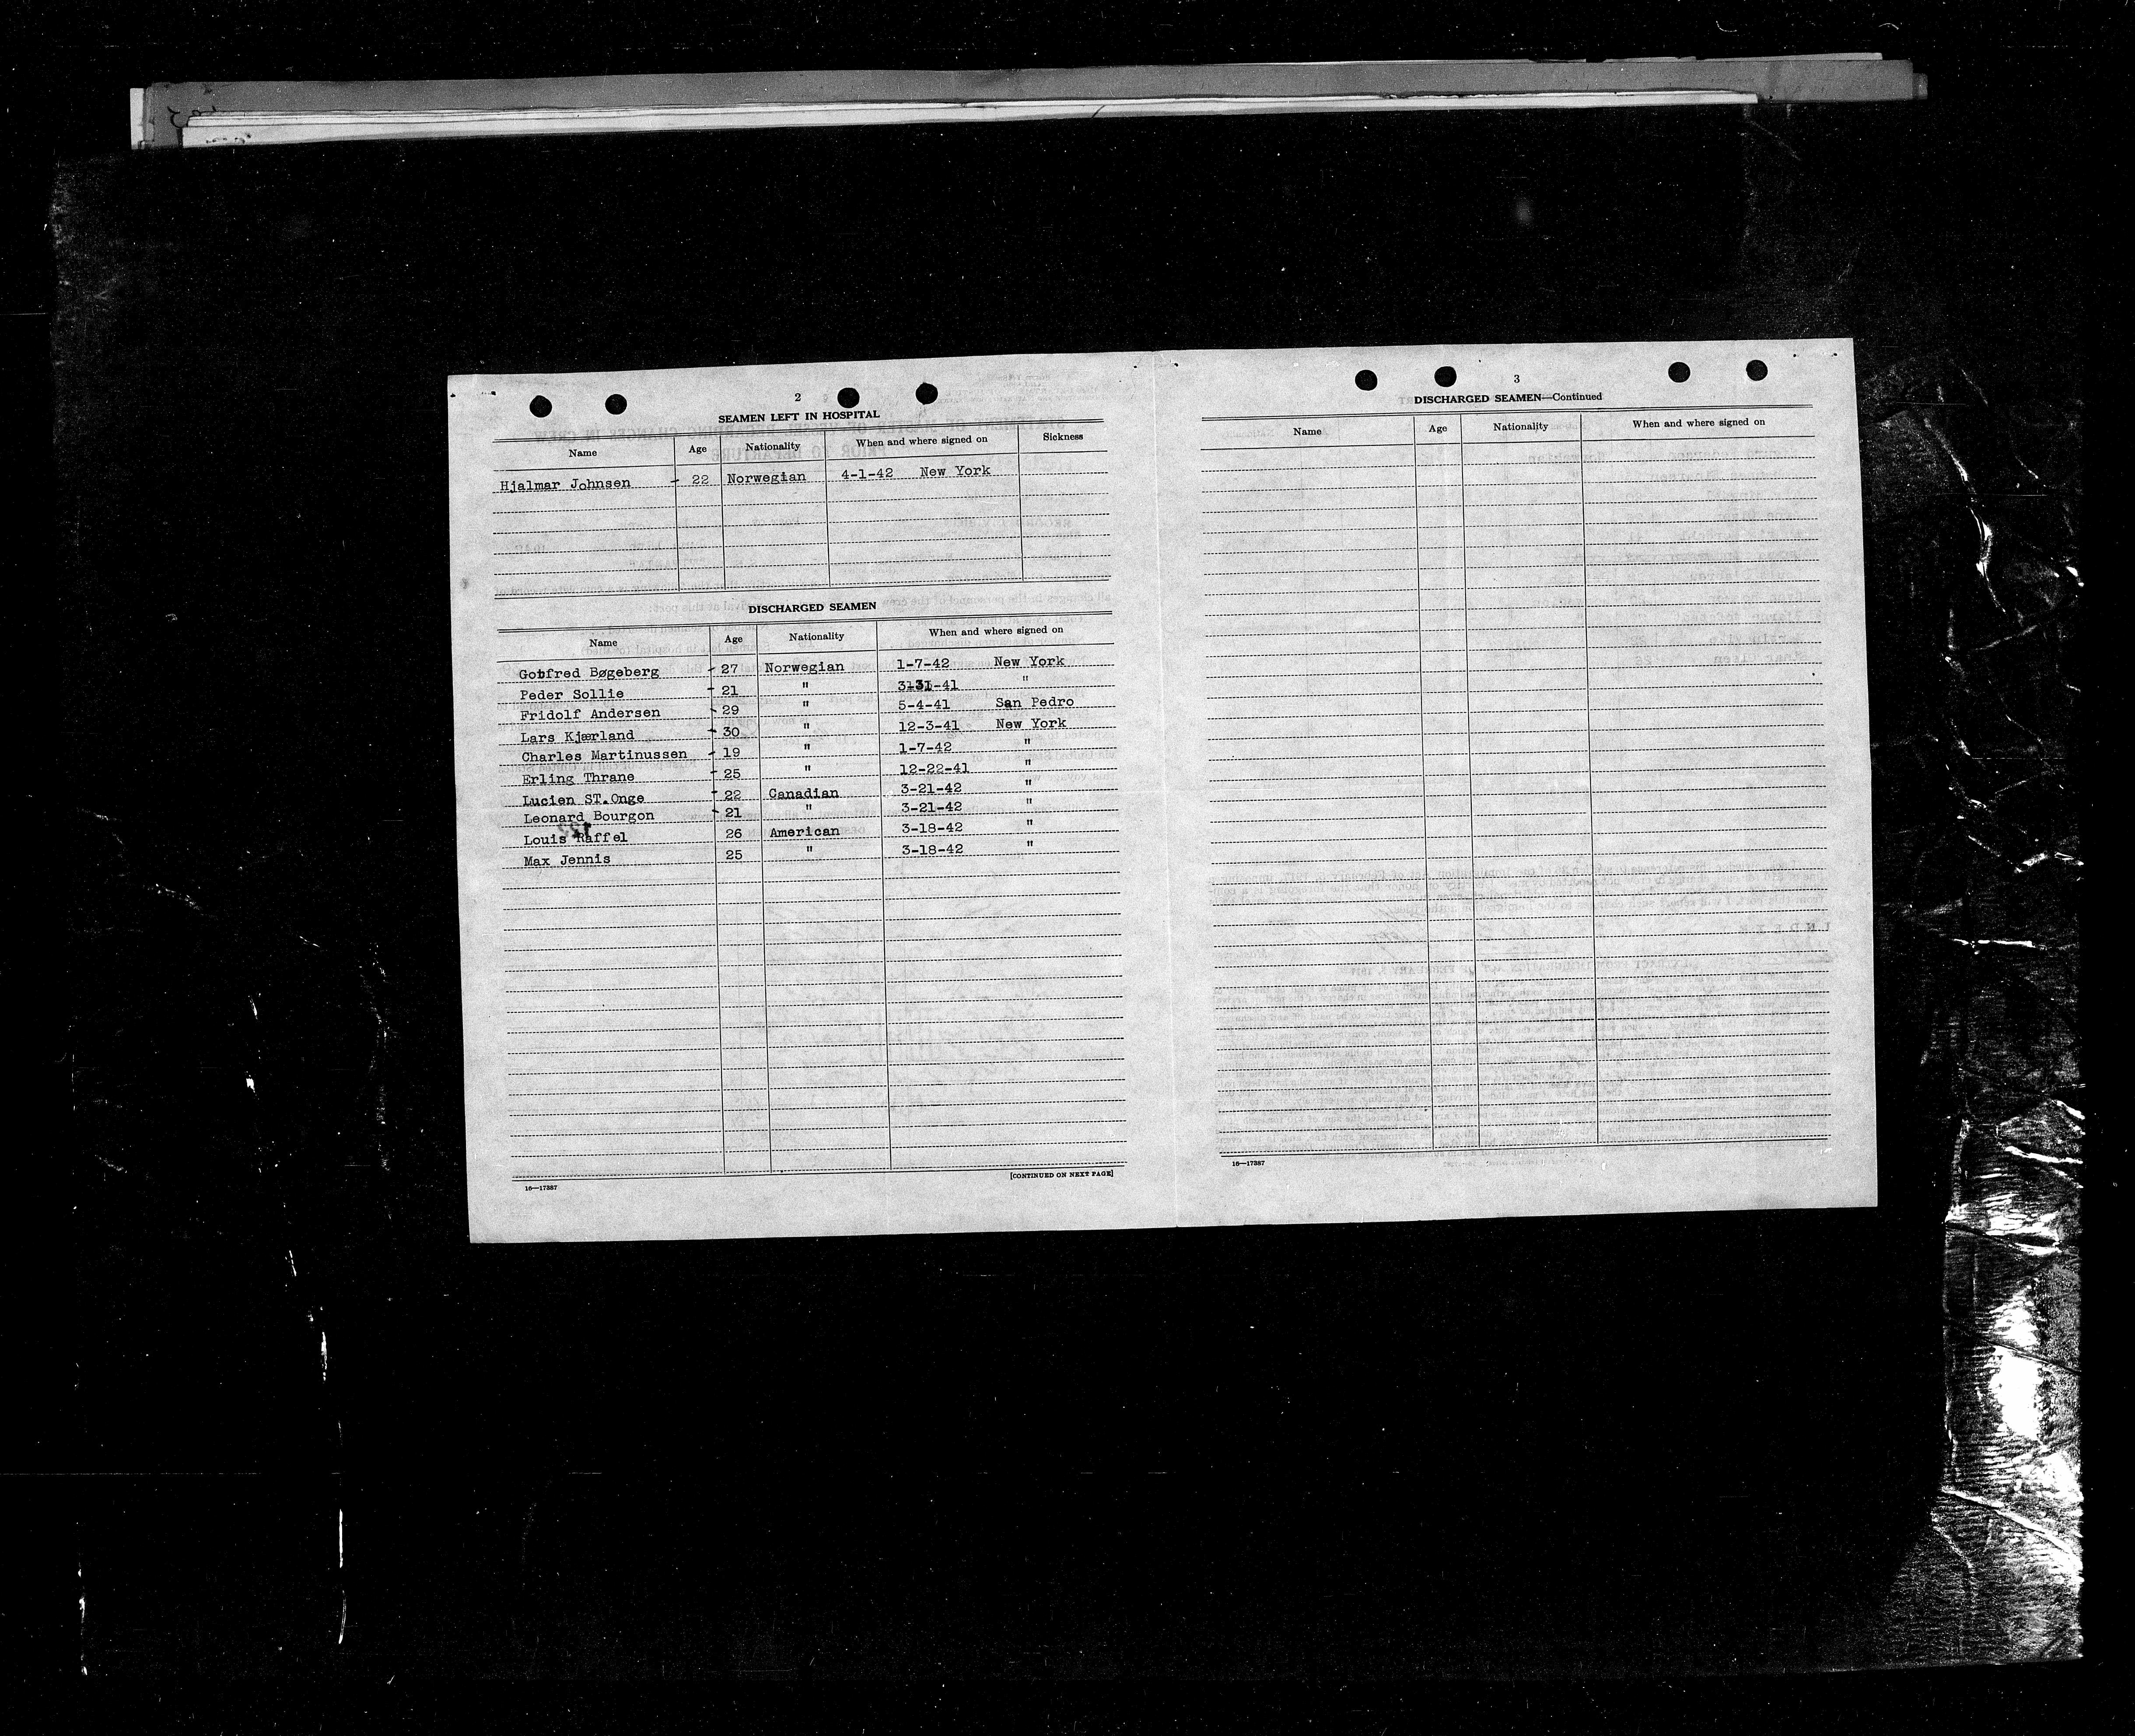 2
SEAMEN LEFT IN HOSPITAL
Name Age Nationality When and where signed on Sickness
Hjalmar Johnsen - 22 Norwegian 4-1-42 New York
DISCHARGED SEAMEN
Name Age Nationality When and where signed on
Gotfred Bøgeberg - 27 Norwegian 1-7-42 New York
Peder Sollie - 21 " 3-31-41 "
Fridolf Andersen - 29 " 5-4-41 San Pedro
Lars Kjærland - 30 " 12-3-41 New York
Charles Martinussen - 19 " 1-7-42 "
Erling Thrane - 25 " 12-22-41 "
Lucien ST.Onge - 22 Canadian 3-21-42 "
Leonard Bourgon - 21 " 3-21-42 "
Louis Raffel 26 American 3-18-42 "
Max Jennis 25 " 3-18-42 "
16—17387
[CONTINUED ON NEXT PAGE]
3
DISCHARGED SEAMEN—Continued
Name Age Nationality When and where signed on
16—17387